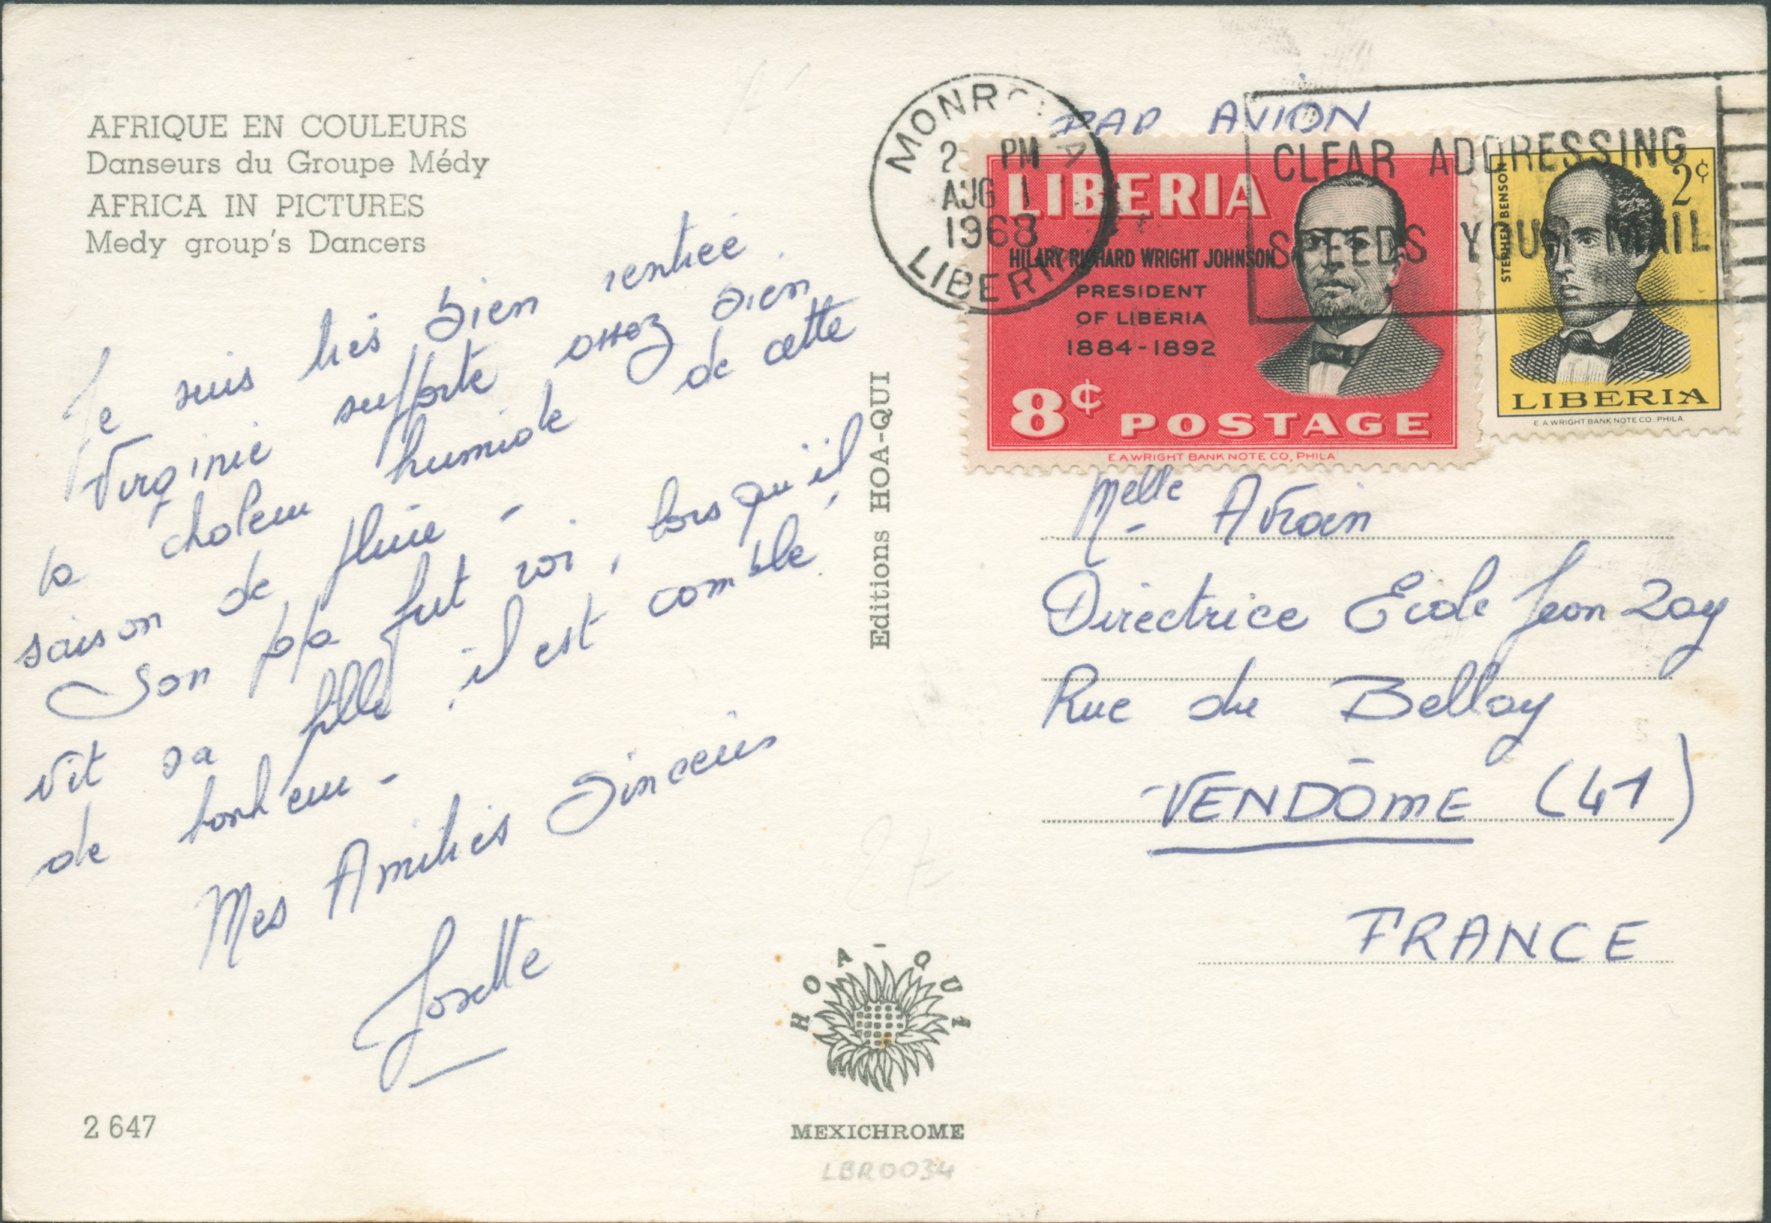 AFRIQUE EN COULEURS
Danseurs du Groupe Médy
AFRICA IN PICTURES
Medy group's Dancers
Je suis très bien rentrée
Virginie supporte assez bien
la chaleur humide de cette
saison de pluie -
Son papa fut roi, lorsqu'il
vit sa fille, il est comblé
de bonheur -
Mes Amitiés Sincères
Josette
2 647
Editions HOA-QUI
HOA-QUI
MEXICHROME
LBR0034
PAR AVION
MONROVIA
2 PM
AUG 1
1968
LIBERIA
CLEAR ADDRESSING
SPEEDS YOUR MAIL
LIBERIA
HILARY RICHARD WRIGHT JOHNSON
PRESIDENT
OF LIBERIA
1884-1892
8¢ POSTAGE
E.A.WRIGHT BANK NOTE CO., PHILA
STEPHEN BENSON
2¢
LIBERIA
E.A.WRIGHT BANK NOTE CO. PHILA.
Melle Avrain
Directrice Ecole Jean Zay
Rue du Bellay
VENDÔME (41)
FRANCE